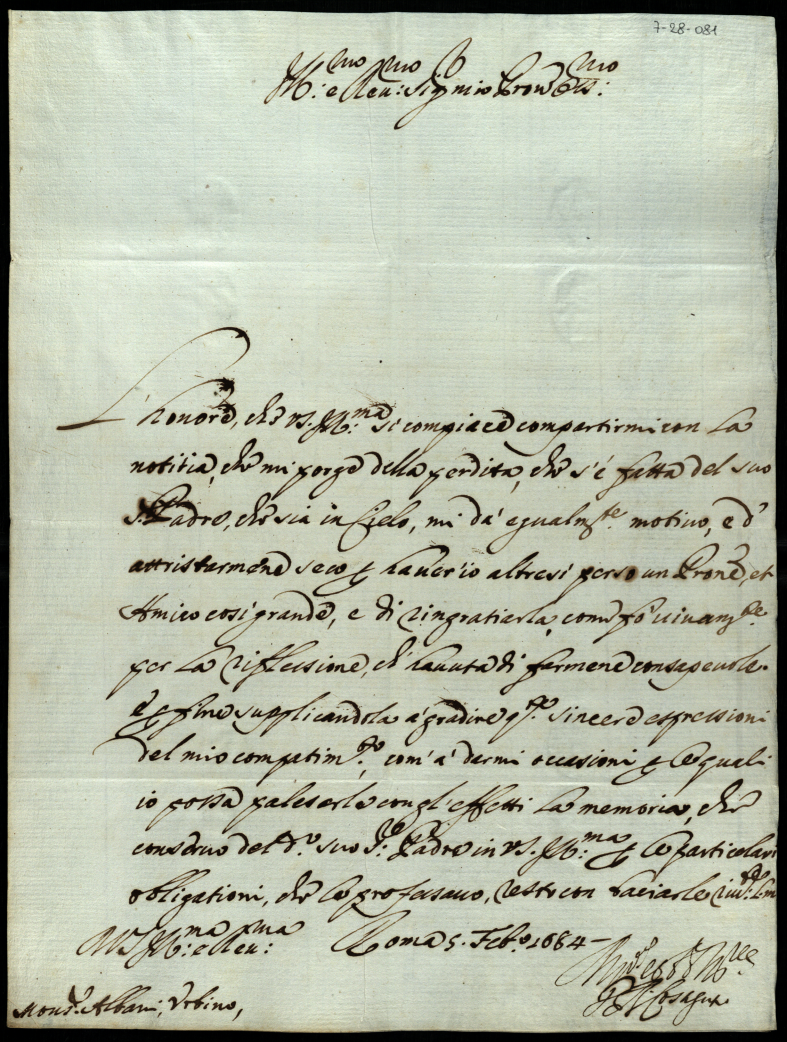 7-28-081
Ill:mo e Reu:mo Sig.r mio Pron Oss:mo
L'honore, che VS. Ill:ma si compiace compartirmi con la
notitia, che mi porge della perdita, che s'è fatta del suo
S.r Padre, che sia in Cielo, mi dà egualm.te motiuo, e d'
attristarmene seco p hauer io altresì perso un Prone, et
Amico così grande, e di ringratiarla, come fò viuam.te
per la riflessione, ch' hauuta di farmene consapeuole.
e p fine supplicandola à gradire q.te sincere espressioni
del mio compatim.to, com' à darmi occasioni p le quali
io possa palesarle con gl'effetti la memoria, che
conseruo del d.o suo S.r Padre in VS. Ill:ma p le particolari
obligationi, che le professauo, resto con baciarle riu:te le m
VS Ill:ma e Reu:ma Roma 5. Feb.o 1684
Mons.r Albani, Vrbino,